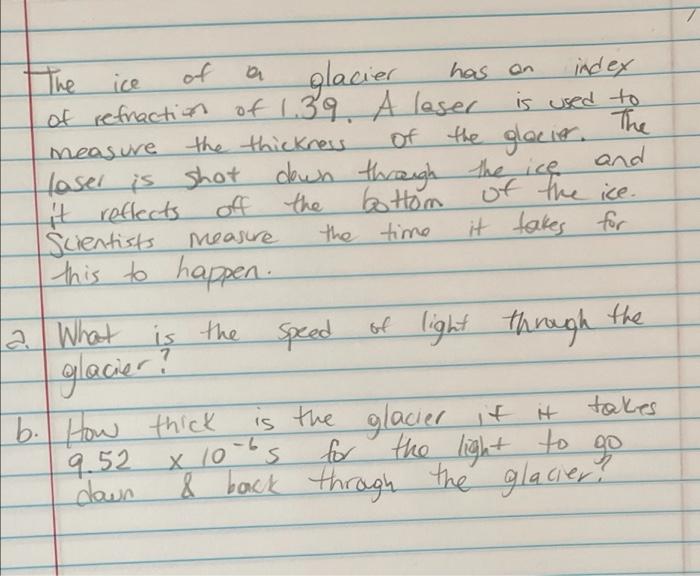 The ice of a glacier has an index
of refraction of 1.39. A laser is used to
measure the thickness of the glacier. The
laser is shot down through the ice and
it reflects off the bottom of the ice.
Scientists measure the time it takes for
this to happen.
a. What is the speed of light through the
glacier?
b. How thick is the glacier if it takes
9.52 x 10⁻⁶ s for the light to go
down & back through the glacier?